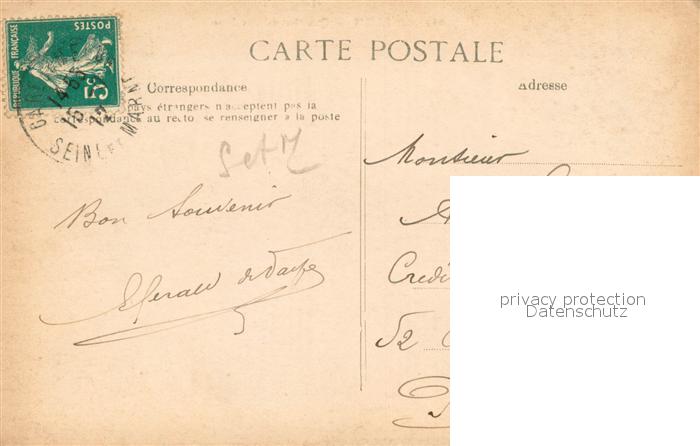 RÉPUBLIQUE FRANÇAISE
POSTES
5c
14-8
15
12
SEINE ET MARNE
CARTE POSTALE
Correspondance
pays étrangers n'acceptent pas la
correspondance au recto, se renseigner à la poste
Adresse
S et M
Bon Souvenir
Monsieur
A
Credi
52
P
privacy protection
Datenschutz